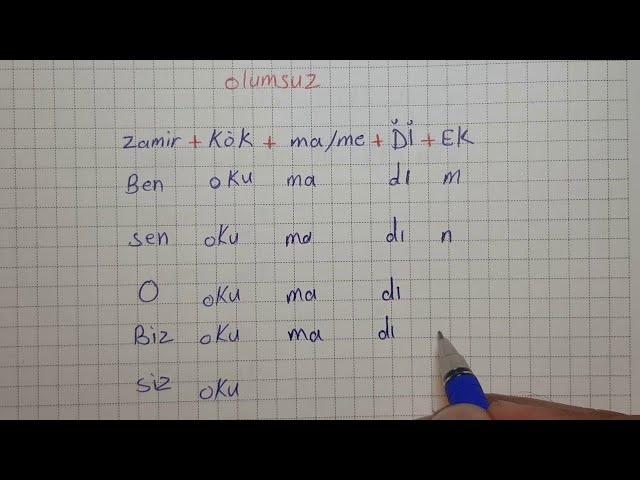 olumsuz
Zamir + Kök + ma/me + Dİ + EK
Ben oKu ma dı m
sen oKu ma dı n
O oKu ma dı
Biz oKu ma dı
siz oKu